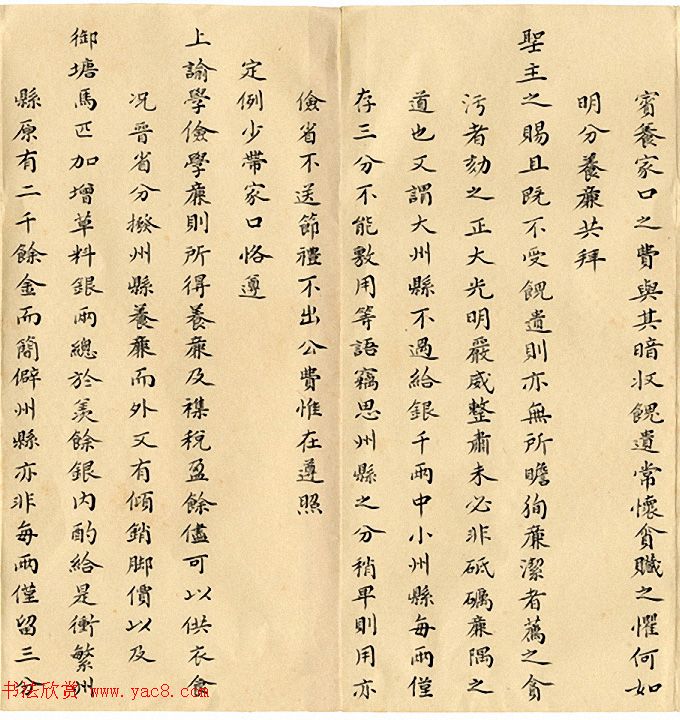 賓養家口之費與其暗收餽遺常懷貪贓之懼何如
明分養廉共拜
聖主之賜且既不受餽遺則亦無所瞻徇廉潔者薦之貪
污者劾之正大光明嚴威整肅未必非砥礪廉隅之
道也又謂大州縣不過給銀千兩中小州縣每兩僅
存三分不能敷用等語竊思州縣之分稍卑則用亦
儉省不送節禮不出公費惟在遵照
定例少帶家口恪遵
上諭學儉學廉則所得養廉及襍稅盈餘儘可以供衣食
况晋省分撥州縣養廉而外又有傾銷脚價以及
御塘馬匹加增草料銀兩總於羨餘銀內酌給是衝繁州
縣原有二千餘金而簡僻州縣亦非每兩僅留三分
书法欣赏 www.yac8.com